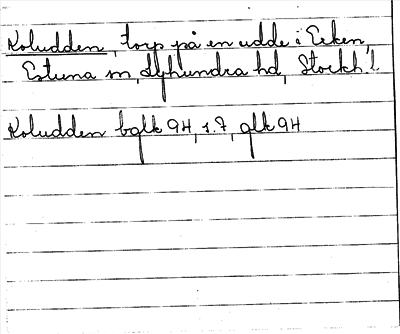 Koludden, torp på en udde i Erken,
Estuna sn, Lyhundra hd, Stockh. l.
Koludden bglk 94, s. 7, glk 94